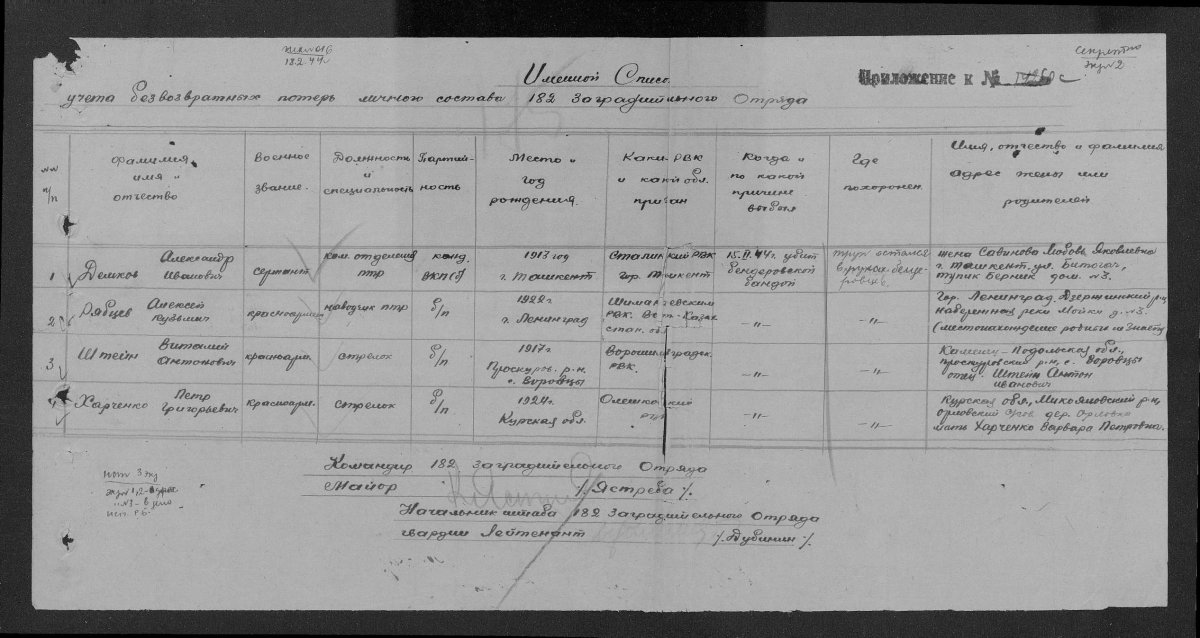 18.2.44г.
Секретно
экз №2
Именной Список
Приложение к №
учета безвозвратных потерь личного состава 182 Заградительного Отряда
№№ п/п
Фамилия имя и отчество
Военное звание.
Должность и специальность
Партийность
Место и год рождения.
Каким РВК и какой обл. призван
Когда и по какой причине выбыл
Где похоронен.
Имя, отчество и фамилия адрес жены или родителей
1 Демков Александр Иванович
сержант
ком. отделения птр
канд. ВКП(б)
1913 год г. Ташкент
Сталинский РВК гор. Ташкент
15.II.44г. убит бендеровской бандой
труп остался в руках бенде-ровцев.
жена Савинова Любовь Яковлевна г. Ташкент, ул. тупик Берник дом. №3.
2 Рябцев Алексей Кузьмич
красноармеец
наводчик птр
б/п
1922г. г. Ленинград
РВК. Вост-Казахстан. обл
-"-
-"-
Гор. Ленинград Дзержинский р-н, набережная реки Мойки д. №3. (местонахождение родных не знает)
3 Штейн Виталий Антонович
красноарм.
стрелок
б/п
1917г. Проскуров. р-н. с. Воровцы
Ворошиловградск. РВК.
-"-
-"-
Каменец-Подольская обл., проскуровский р-н, с. Воровцы отец Штейн Антон Иванович
4 Харченко Петр Григорьевич
Красноарм.
стрелок
б/п
1924г. Курская обл.
-"-
-"-
Курская обл., Микояновский р-н, орловский дер. Орловка мать Харченко Варвара Петровна.
Командир 182 Заградительного Отряда
Майор /. Ястреба /.
Начальник штаба 182 Заградительного Отряда
гвардии Лейтенант /. Дубинин /.
3 экз